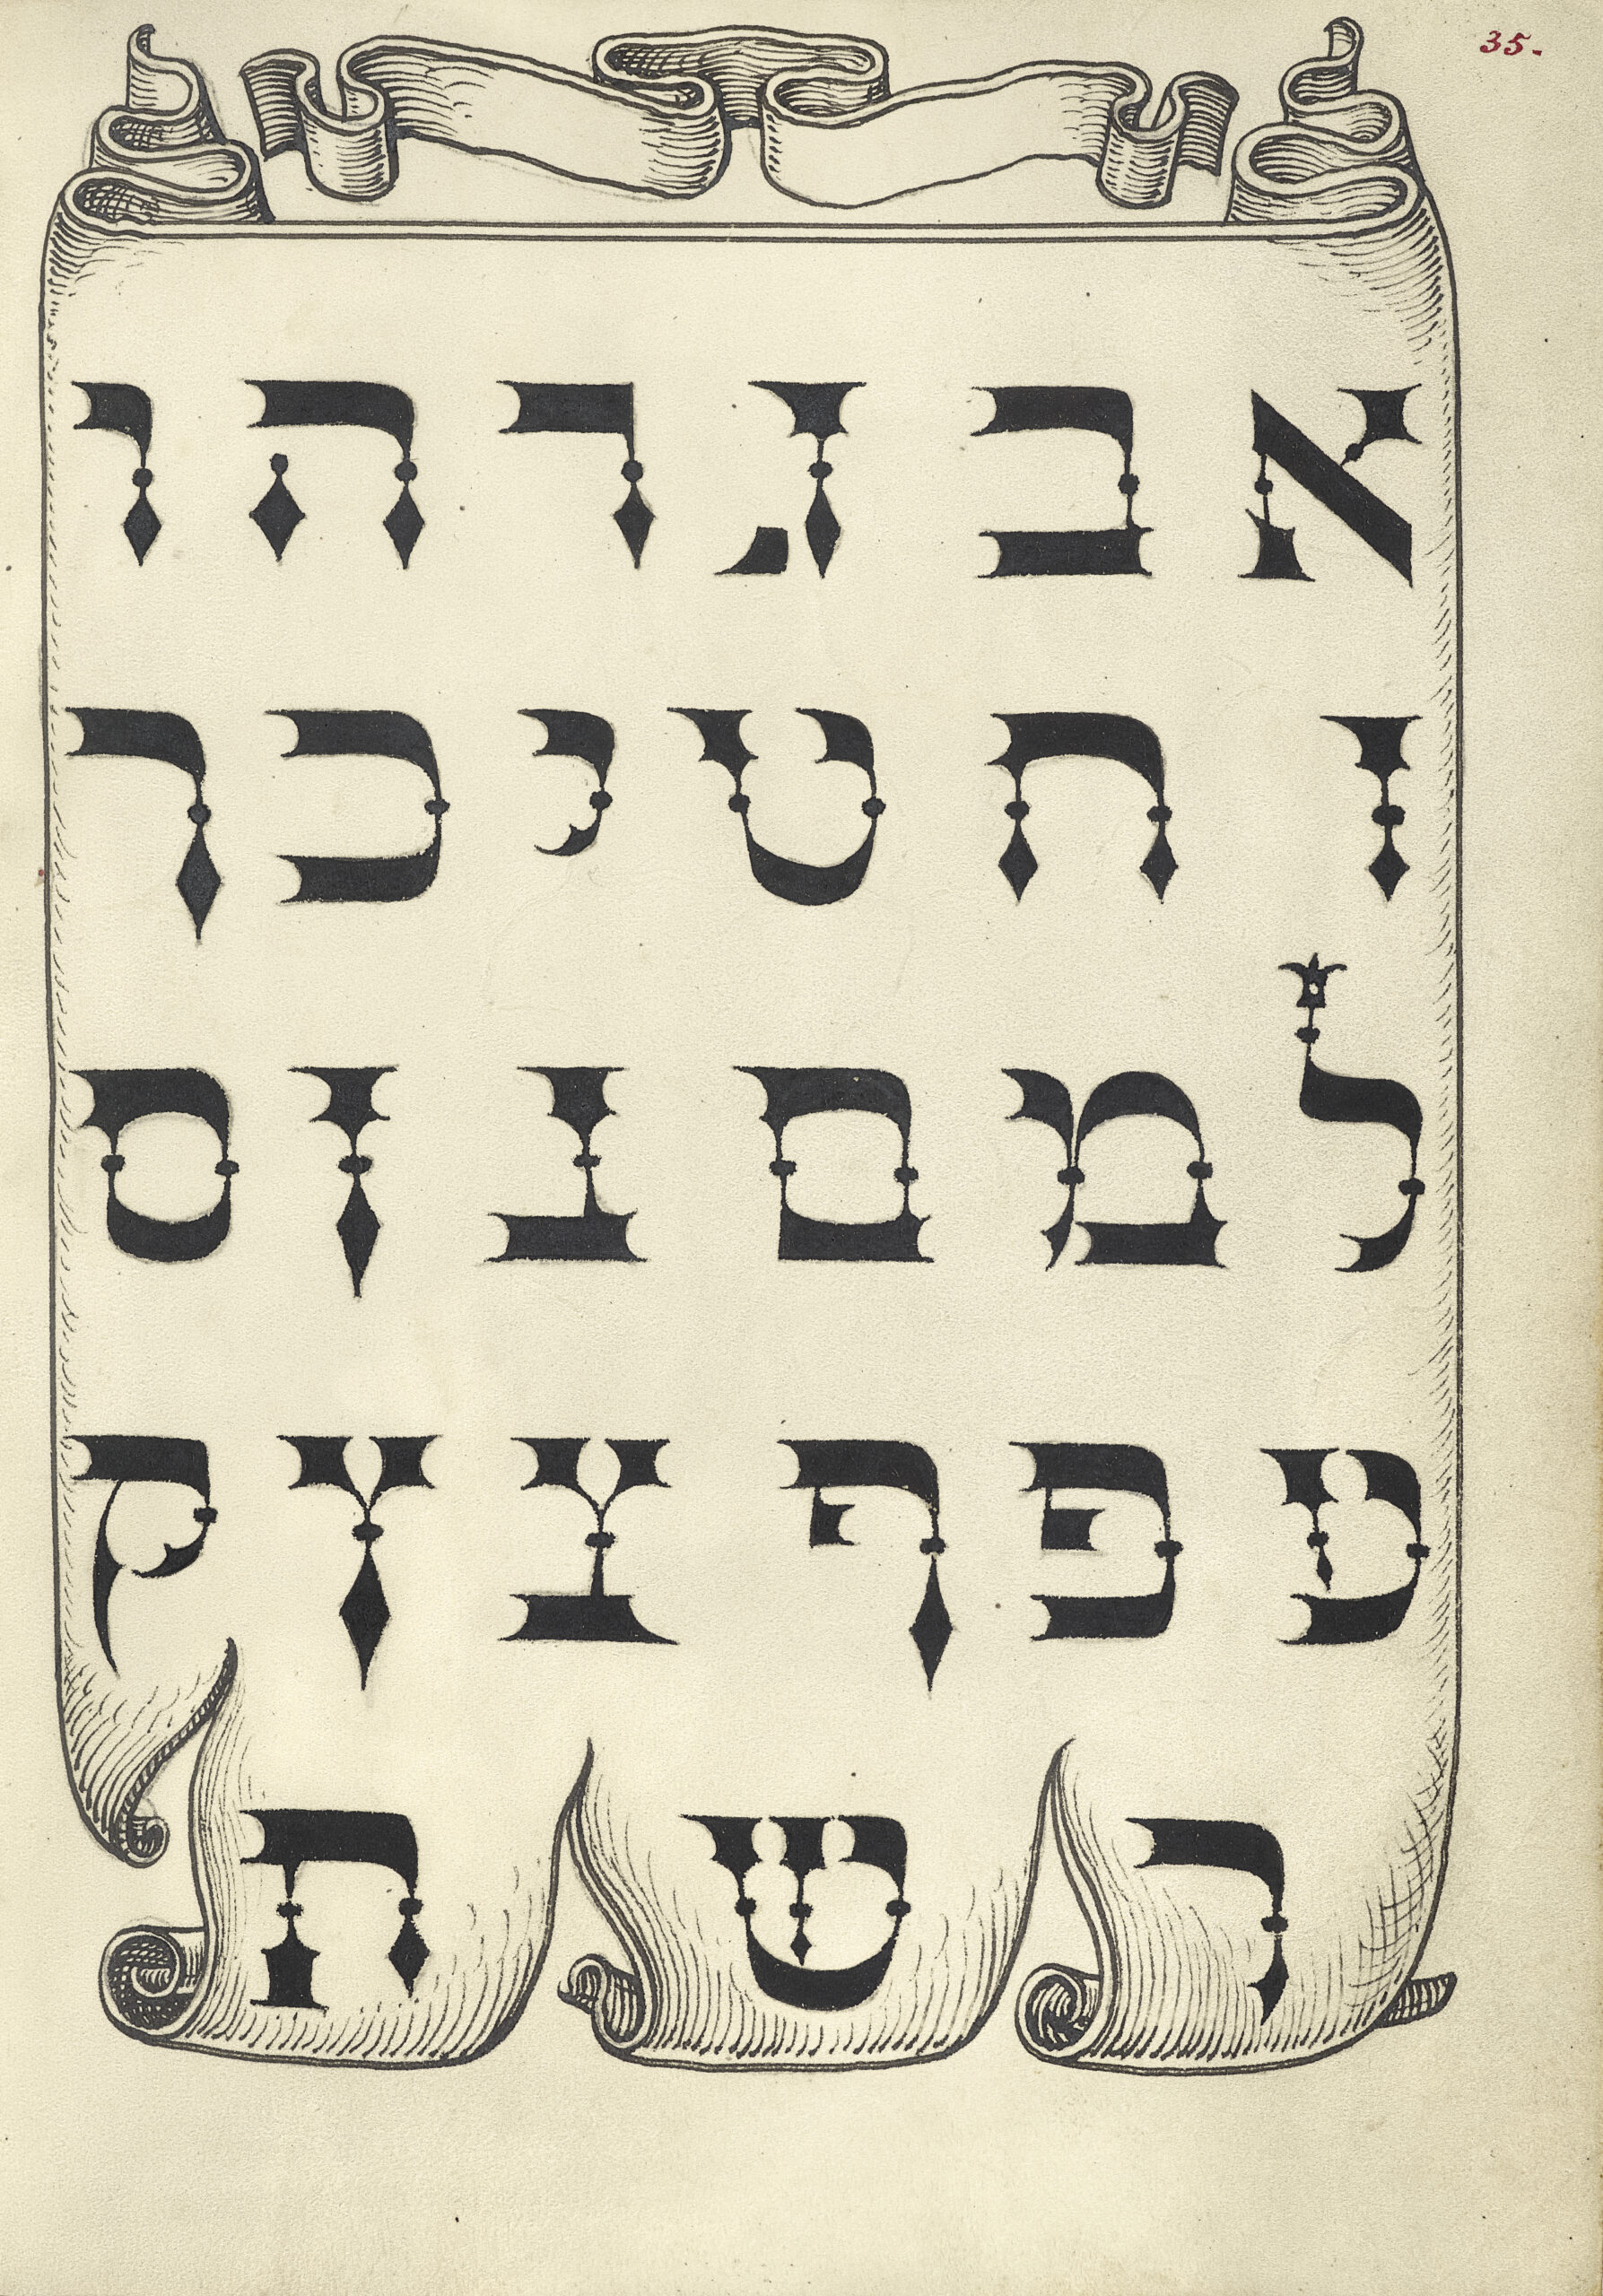 35.
א ב ג ד ה ו
ז ח ט י כ ך
ל מ ם נ ן ס
ע פ ף צ ץ ק
ר ש ת